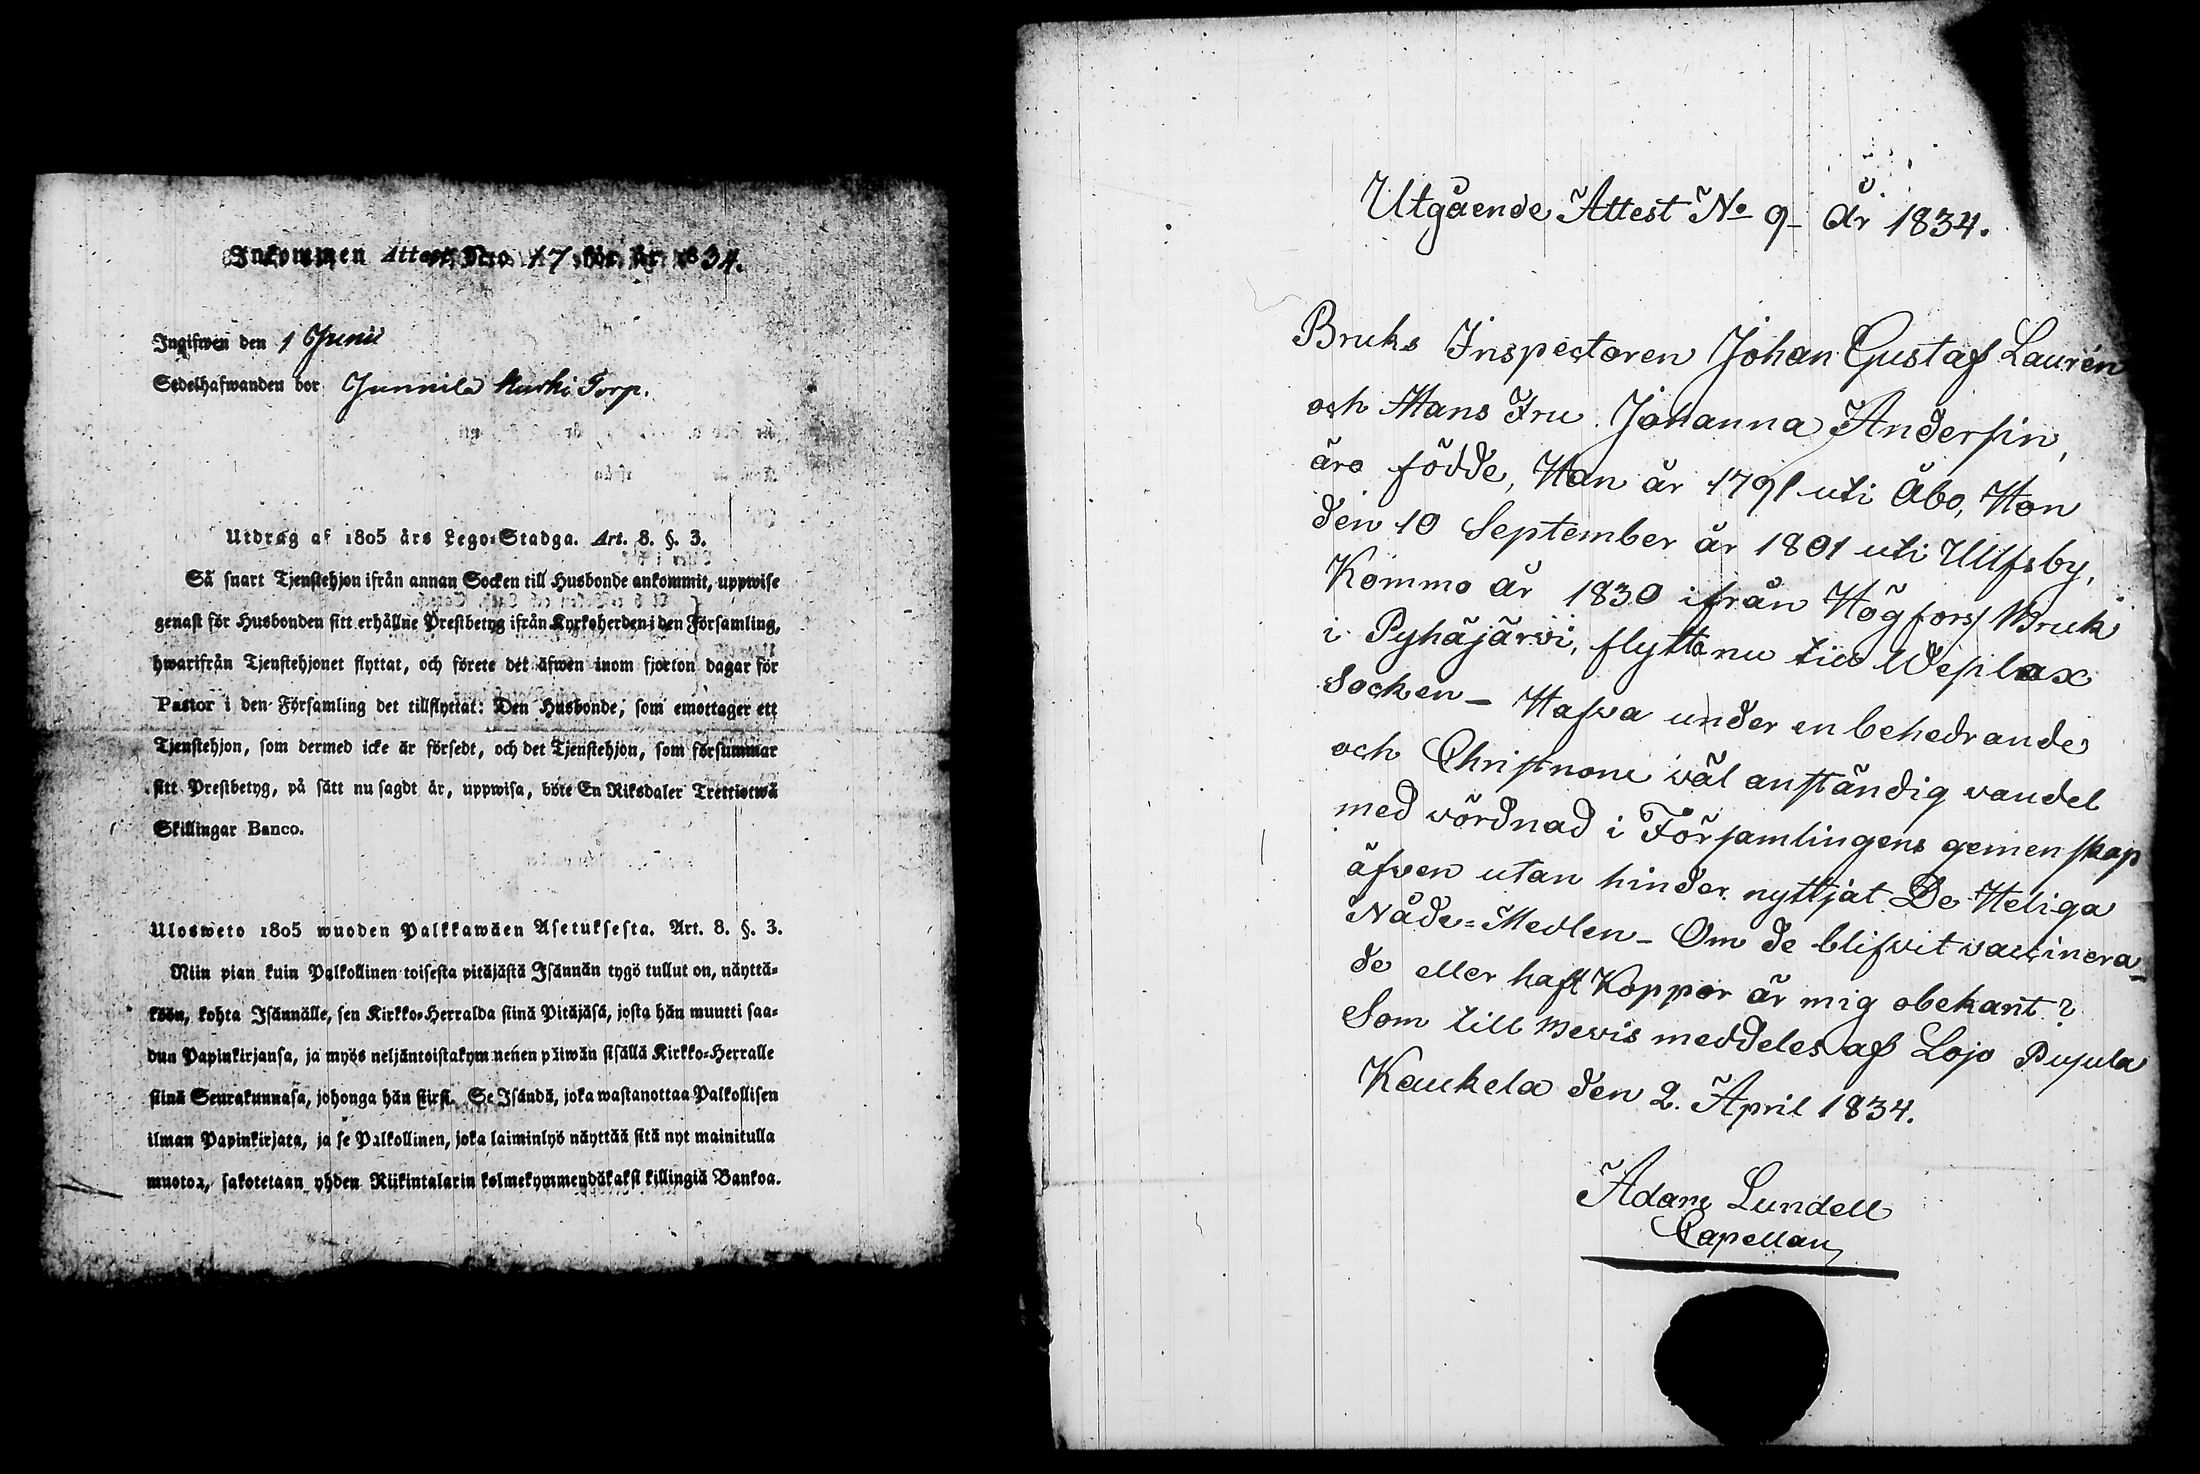 Inkommen Attest N:o 17 för år 1834.
Ingifwen den 1 Junii
Sedelhafwanden bor Junnila Kurki Torp.
Utdrag af 1805 års Lego-Stadga. Art. 8. §. 3.
Så snart Tjenstehjon ifrån annan Socken till Husbonde ankommit, uppwise
genast för Husbonden sitt erhållne Prestbetyg ifrån Kyrkoherden i den Församling,
hwarifrån Tjenstehjonet flyttat, och förete det äfwen inom fjorton dagar för
Pastor i den Församling det tillflyttat: Den Husbonde, som emottager ett
Tjenstehjon, som dermed icke är försedt, och det Tjenstehjon, som försummar
sitt Prestbetyg, på sätt nu sagdt är, uppwisa, böte En Riksdaler Trettiotwå
Skillingar Banco.
Ulosweto 1805 wuoden Palkkawäen Asetuksesta. Art. 8. §. 3.
Niin pian kuin Palkollinen toisesta pitäjästä Isännän tygö tullut on, näyttä-
köön, kohta Isännälle, sen Kirkko-Herralda siinä Pitäjäsä, josta hän muutti saa-
dun Papinkirjansa, ja myös neljäntoistakymmenen päiwän sisällä Kirkko-Herralle
siinä Seurakunnasa, johonga hän siirsi. Se Isändä, joka wastanottaa Palkollisen
ilman Papinkirjata, ja se Palkollinen, joka laiminlyö näyttää sitä nyt mainitulla
muotoa, sakotetaan yhden Riikintalarin kolmekymmendäkaksi killingiä Bankoa.
Utgående Attest No 9 år 1834.
Bruks Inspectoren Johan Gustaf Laurén
och Hans Fru Johanna Andersin,
äro födde, Han år 1791 uti Åbo, Hon
den 10 September år 1801 uti Ulfsby,
Kommo år 1830 ifrån Högfors Bruk
i Pyhäjärwi, flytta nu till Wesilax
Socken – Hafva under en behedrande
och Christnom wäl anständig vandel
med wördnad i Församlingens gemenskap
äfven utan hinder nyttjat De Heliga
Nåde-Medlen – Om de blifvit vaccinera-
de eller haft Koppor är mig obekant?
Som till bevis meddeles af Lojo Pusula
Kaukela den 2. April 1834.
Adam Lundell
Capellan